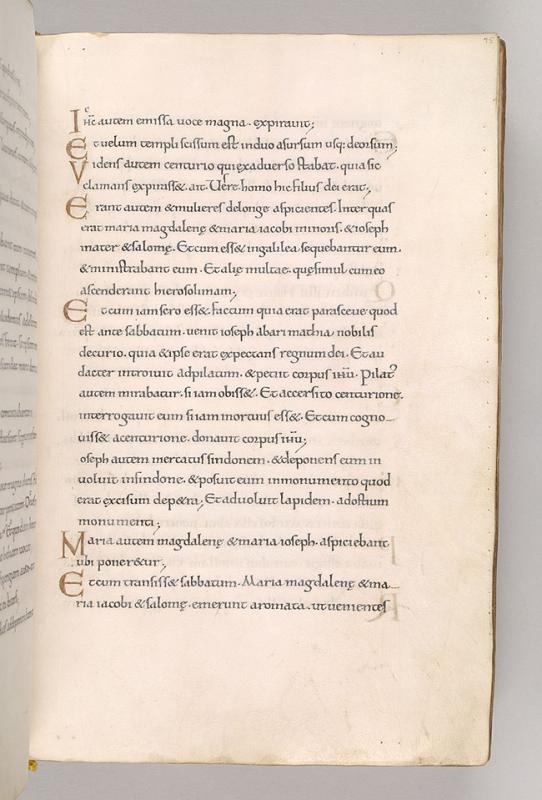 75
Ihc autem emissa voce magna. expiravit;
Et velum templi scissum est in duo a sursum usq; deorsum;
Videns autem centurio qui ex adverso stabat. quia sic
clamans expirass&. ait. Vere homo hic filius dei erat;
Erant autem & mulieres de longe aspicientes. Inter quas
erat maria magdalenę & maria iacobi minoris. & ioseph
mater & salomę. Et cum ess& in galilea. sequebantur eum.
& ministrabant eum. Et alię multae. quę simul cum eo
ascenderant hierosolimam;
Et cum iam sero ess& factum quia erat parasceue. quod
est ante sabbatum. venit ioseph ab arimathia nobilis
decurio. quia & ipse erat expectans regnum dei. Et au
dacter introivit ad pilatum. & petiit corpus ihu. Pilatꝰ
autem mirabatur. si iam obiss&. Et accersito centurione.
interrogavit eum si iam mortuus ess&. Et cum cogno-
uiss& a centurione. donavit corpus ihu;
oseph autem mercatus sindonem. & deponens eum in
voluit in sindone. & posuit eum in monumento quod
erat excisum de p&ra; Et advoluit lapidem. ad ostium
monumenti;
Maria autem magdalenę & maria ioseph. aspiciebant
ubi poner&ur;
Et cum transiss& sabbatum. Maria magdalenę & ma-
ria iacobi & salomę. emerunt aromata. ut venientes